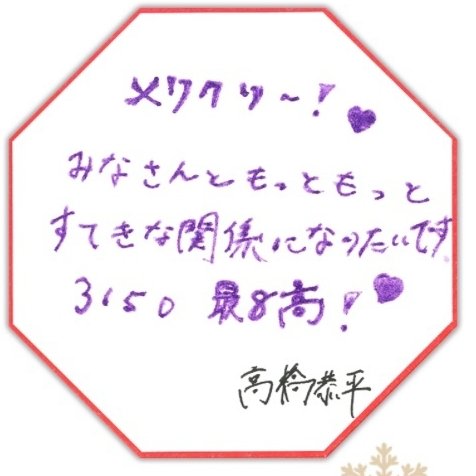 メリクリ〜!
みなさんともっともっと
すてきな関係になりたいです
3150 最&高!
高橋恭平